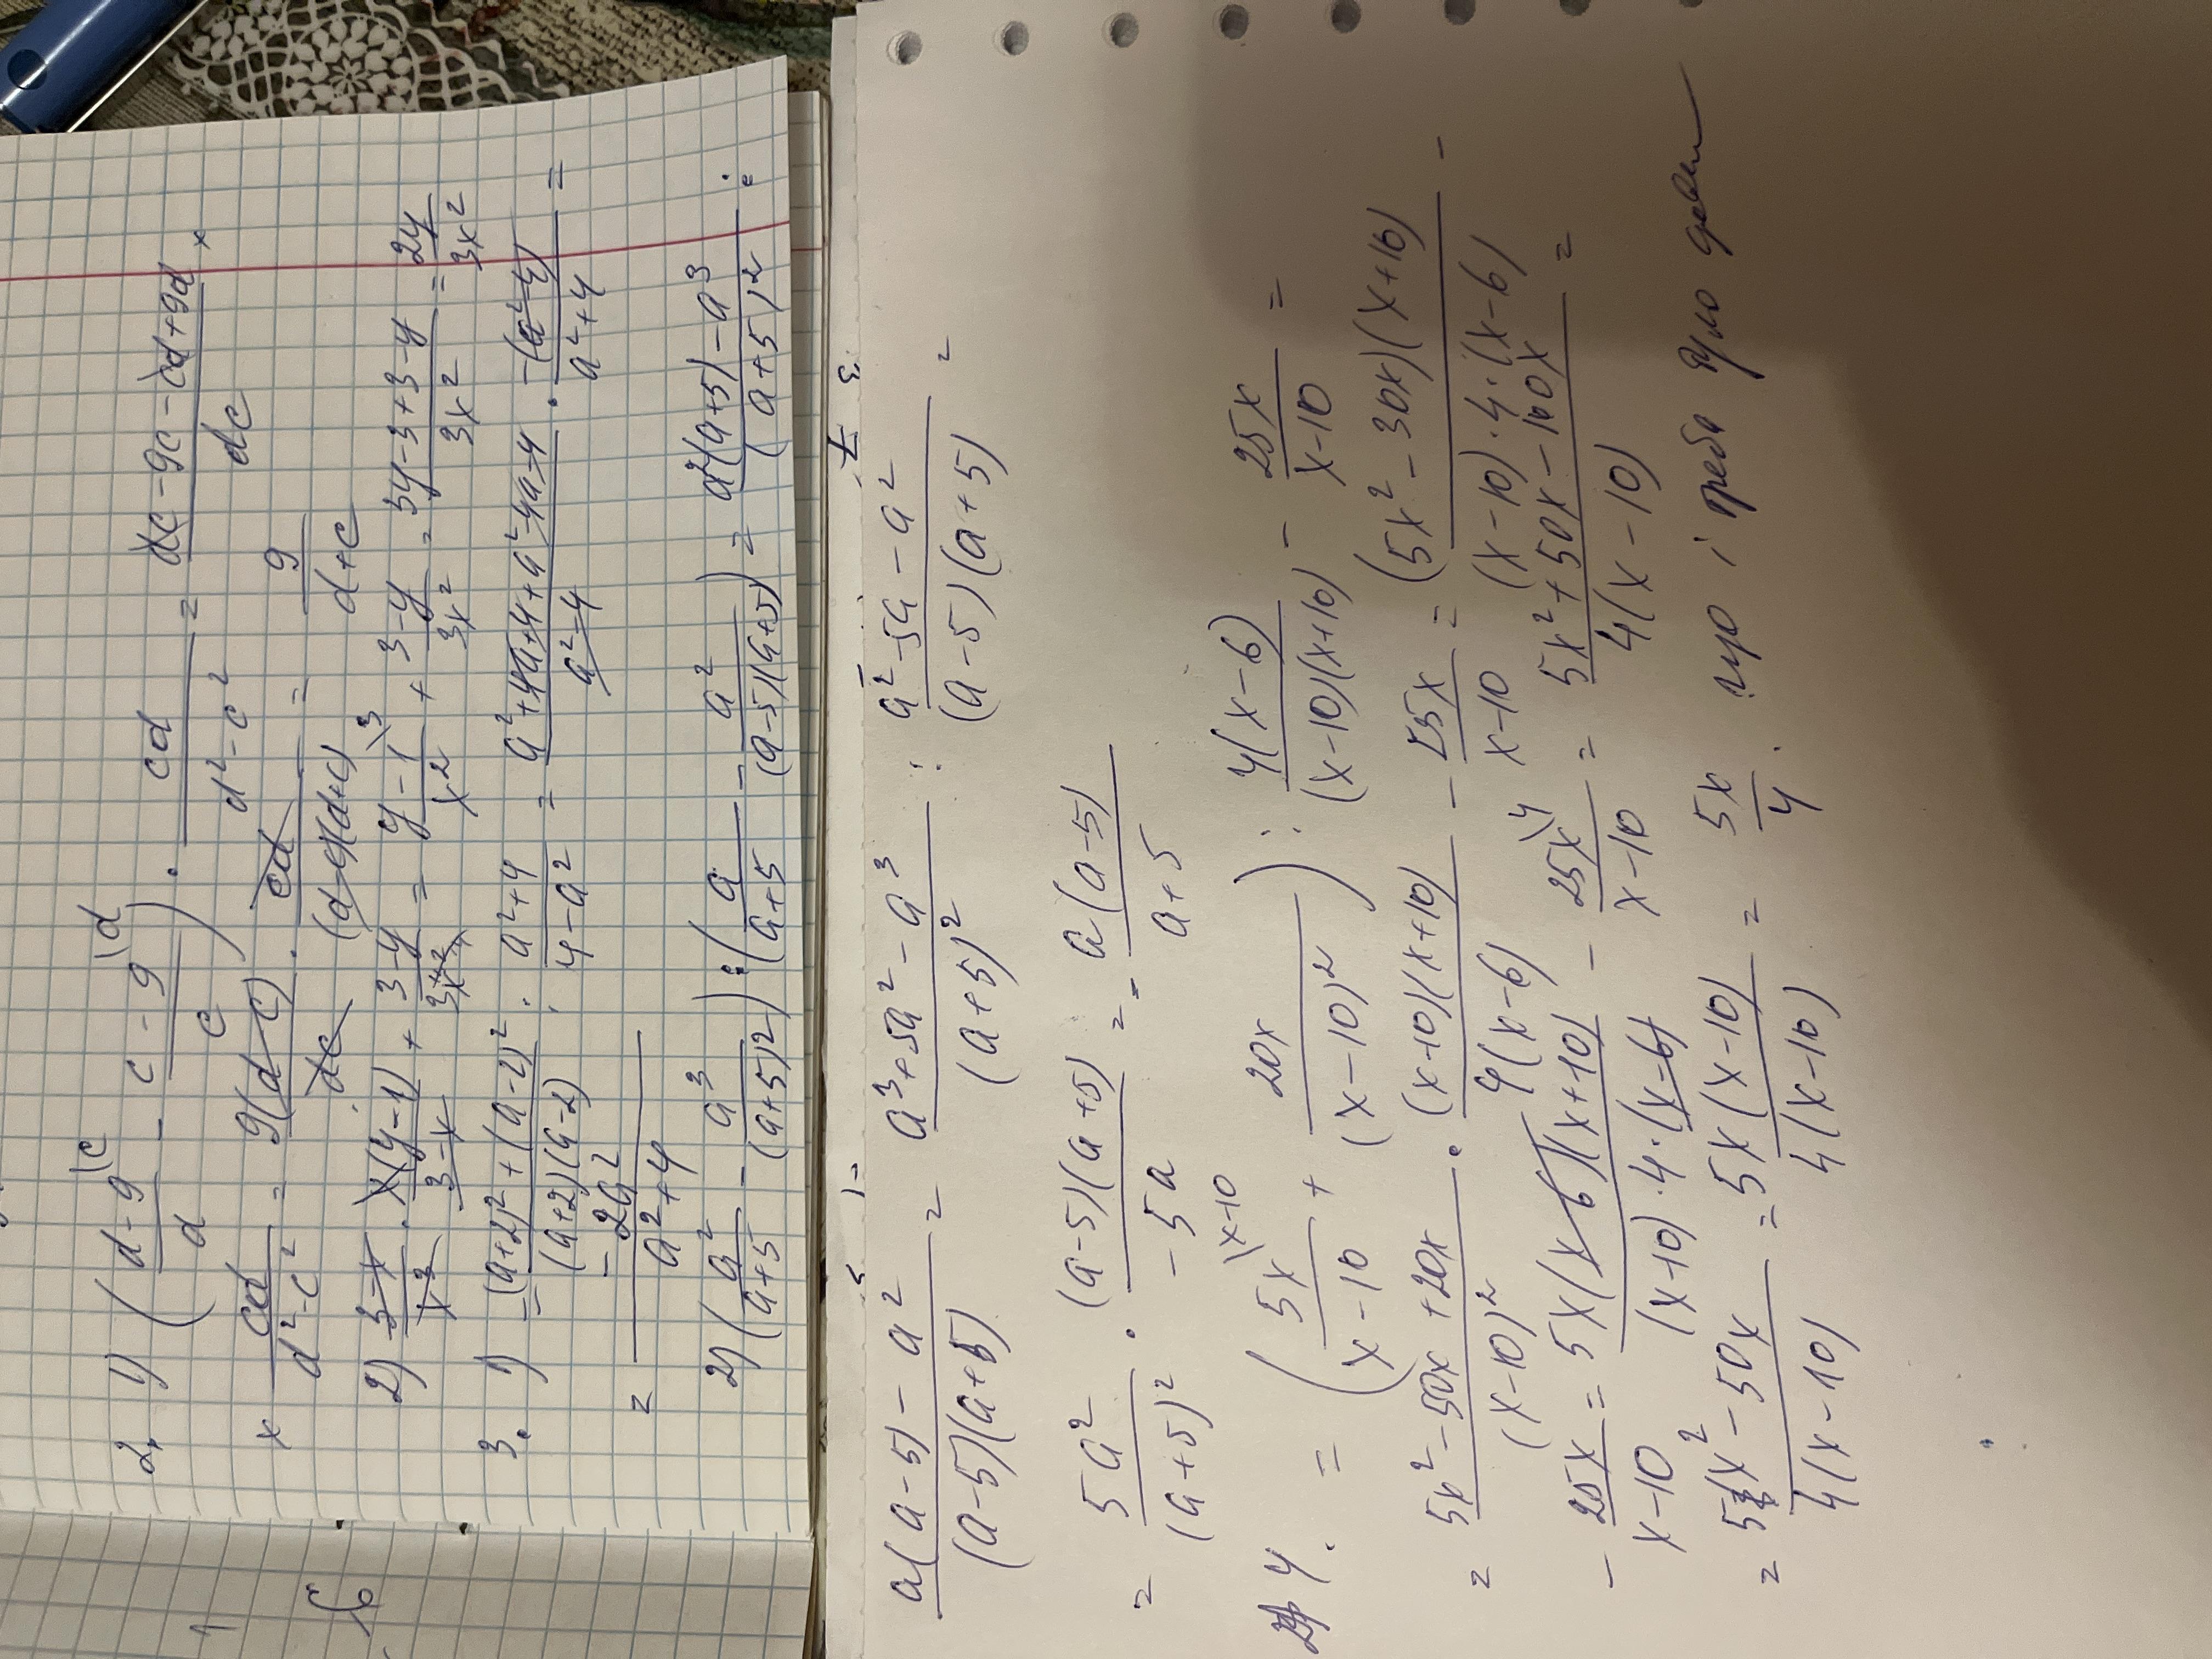 2. 1) ( (d-9)/d \c - (c-9)/c \d ) · cd/(d²-c²) = (dc-9c-cd+9d)/dc ×
× cd/(d²-c²) = 9(d-c)/dc · cd/((d-c)(d+c)) = 9/(d+c)
2) (3-x)/x³ · x(y-1)/(3-x) + (3-y)/3x² = (y-1)/x² \3 + (3-y)/3x² = (3y-3+3-y)/3x² = 2y/3x²
3. 1) = ((a+2)²+(a-2)²)/((a+2)(a-2)) : (a²+4)/(4-a²) = (a²+4a+4+a²-4a+4)/(a²-4) · -(a²-4)/(a²+4) =
= -2a²/(a²+4)
2) ( a²/(a+5) - a³/(a+5)² ) : ( a/(a+5) - a²/((a-5)(a+5)) ) = (a²(a+5)-a³)/(a+5)² :
(a(a-5)-a²)/((a-5)(a+5)) = (a³+5a²-a³)/(a+5)² : (a²-5a-a²)/((a-5)(a+5)) =
= 5a²/(a+5)² · (a-5)(a+5)/(-5a) = - a(a-5)/(a+5)
4. = ( 5x/(x-10) \x-10 + 20x/(x-10)² ) : 4(x-6)/((x-10)(x+10)) - 25x/(x-10) =
= (5x²-50x+20x)/(x-10)² · (x-10)(x+10)/4(x-6) - 25x/(x-10) = (5x²-30x)(x+10)/((x-10)·4·(x-6)) -
- 25x/(x-10) = 5x(x-6)(x+10)/((x+10)·4·(x-6)) - 25x/(x-10) \4 = (5x²+50x-100x)/4(x-10) =
= (5x²-50x)/4(x-10) = 5x(x-10)/4(x-10) = 5x/4. що і треба було довести